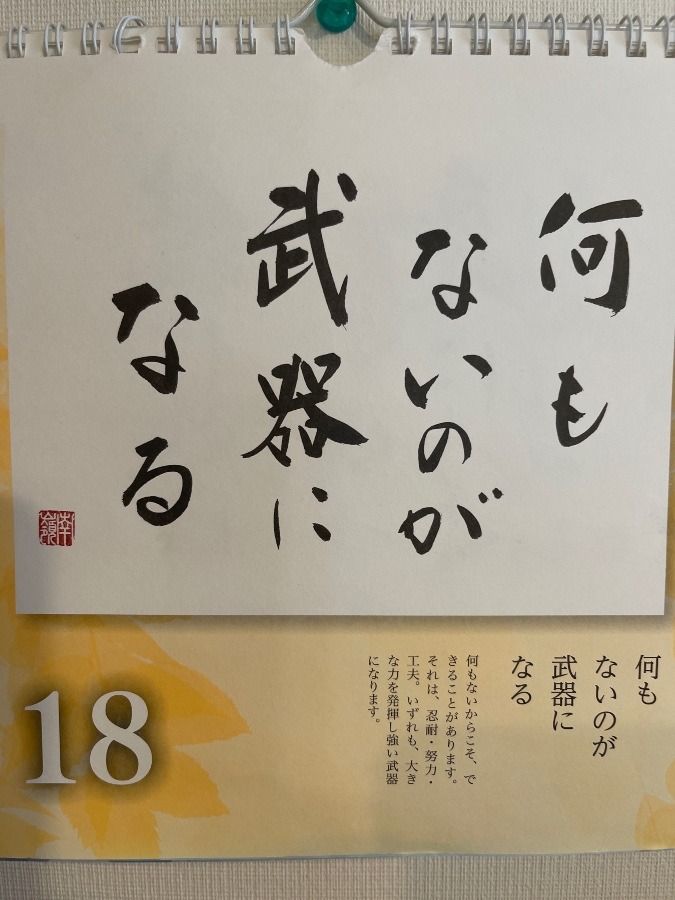 何も
ないのが
武器に
なる
何も
ないのが
武器に
なる
何もないからこそ、で
きることがあります。
それは、忍耐・努力・
工夫。いずれも、大き
な力を発揮し強い武器
になります。
18